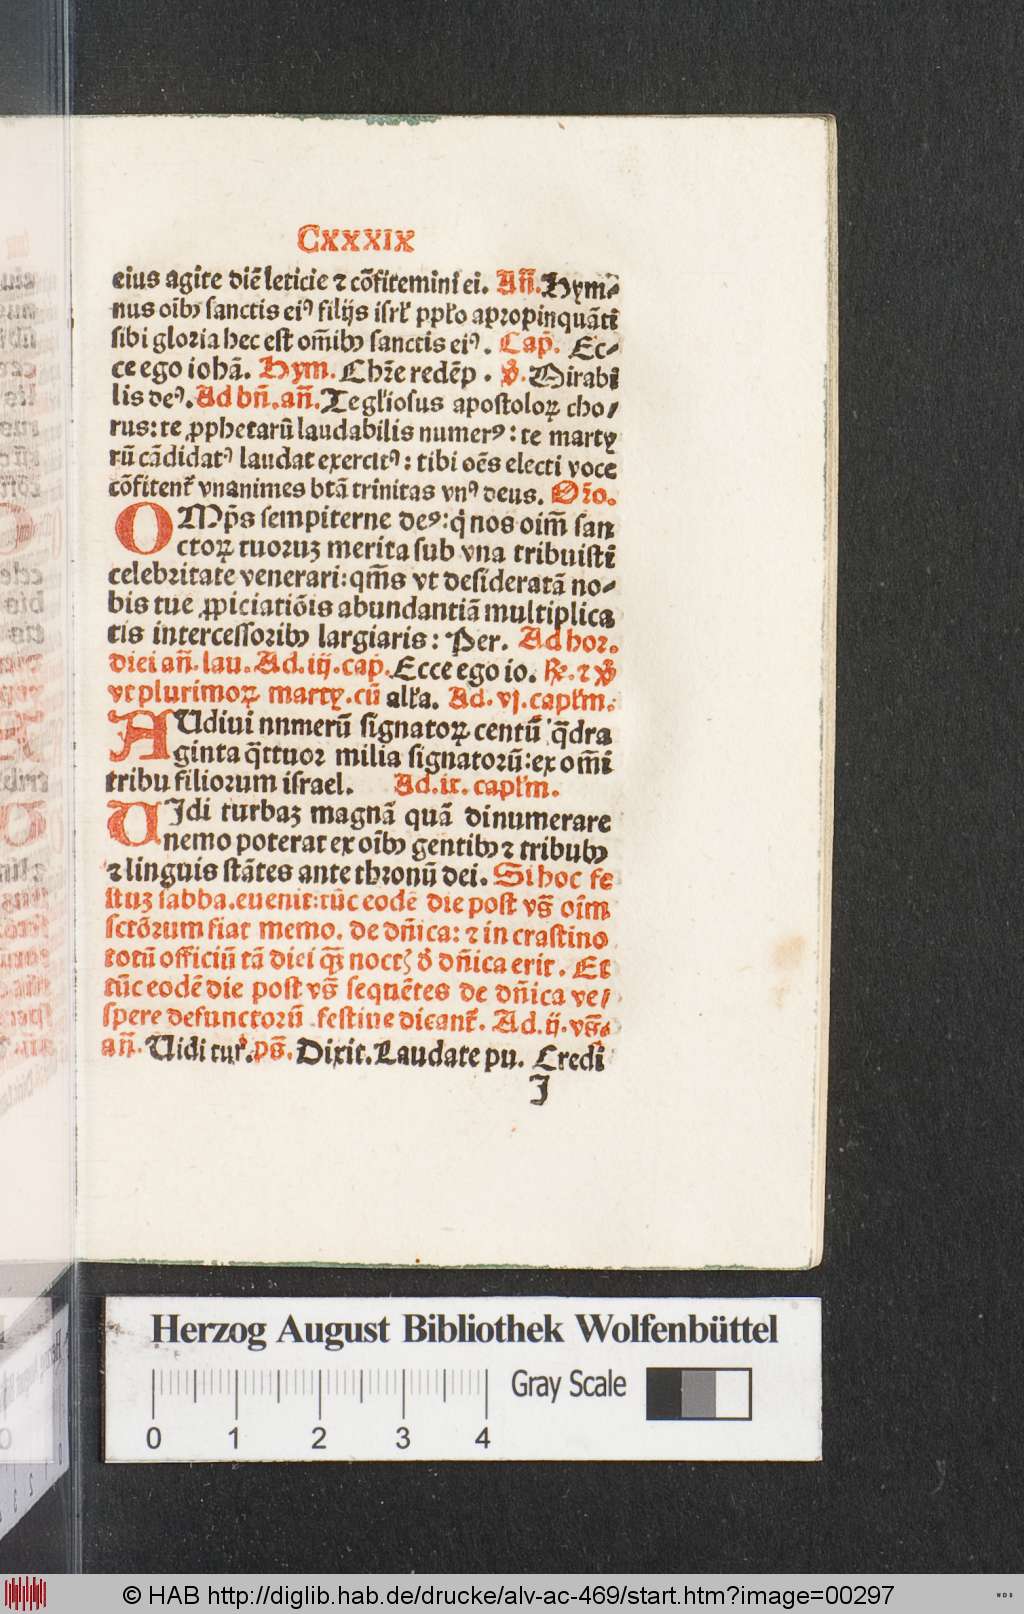 CXXXIX
eius agite diē leticie ⁊ cōfitemini ei. Añ. Hym-
nus oib⁹ sanctis ei⁹ filijs isrł ppło apropinquāti
sibi gloria hec est om̄ib⁹ sanctis ei⁹. Cap̄. Ec-
ce ego iohā. Hym. Chr̄e redēp. V̓. Mirabi
lis de⁹. Ad bn̄. an̄. Te głiosus apostoloꝝ cho/
rus: te ꝓphetarū laudabilis numer⁹: te marty
rū cādidat⁹ laudat exercit⁹: tibi oēs electi voce
cōfitent᷑ vnanimes btā trinitas vn⁹ deus. Or̄o.
OMp̄s sempiterne de⁹: q̄ nos oim̄ san
ctoꝝ tuoruʒ merita sub vna tribuisti
celebritate venerari: qm̄s vt desideratā no-
bis tue ꝓpiciatiōis abundantiā multiplica
tis intercessorib⁹ largiaris: Per. Ad hor.
diei an̄. lau. Ad. iij. cap̄. Ecce ego io. ℞. ⁊ V̓
vt plurimoꝝ marty. cū alła. Ad. vj. capłm.
AUdiui nnmerū signatoꝝ centū q̄dra
ginta q̄ttuor milia signatorū: ex om̄i
tribu filiorum israel. Ad. ix. capłm.
UIdi turbaʒ magnā quā dinumerare
nemo poterat ex oib⁹ gentib⁹ ⁊ tribub⁹
⁊ linguis stātes ante thronū dei. Si hoc fe
stuʒ sabba. euenit: tūc eodē die post vs̄ oim̄
sctōrum fiat memo. de dn̄ica: ⁊ in crastino
totū officiū tā diei q̄ʒ noctʒ d̓ dn̄ica erit. Et
tūc eodē die post vs̄ sequētes de dn̄ica ve/
spere defunctorū festiue dicant᷑. Ad. ij. vs̄.
an̄. Uidi tur̓. ps̄. Dixit. Laudate pu. Credi
J
Herzog August Bibliothek Wolfenbüttel
Gray Scale
0 1 2 3 4
© HAB http://diglib.hab.de/drucke/alv-ac-469/start.htm?image=00297